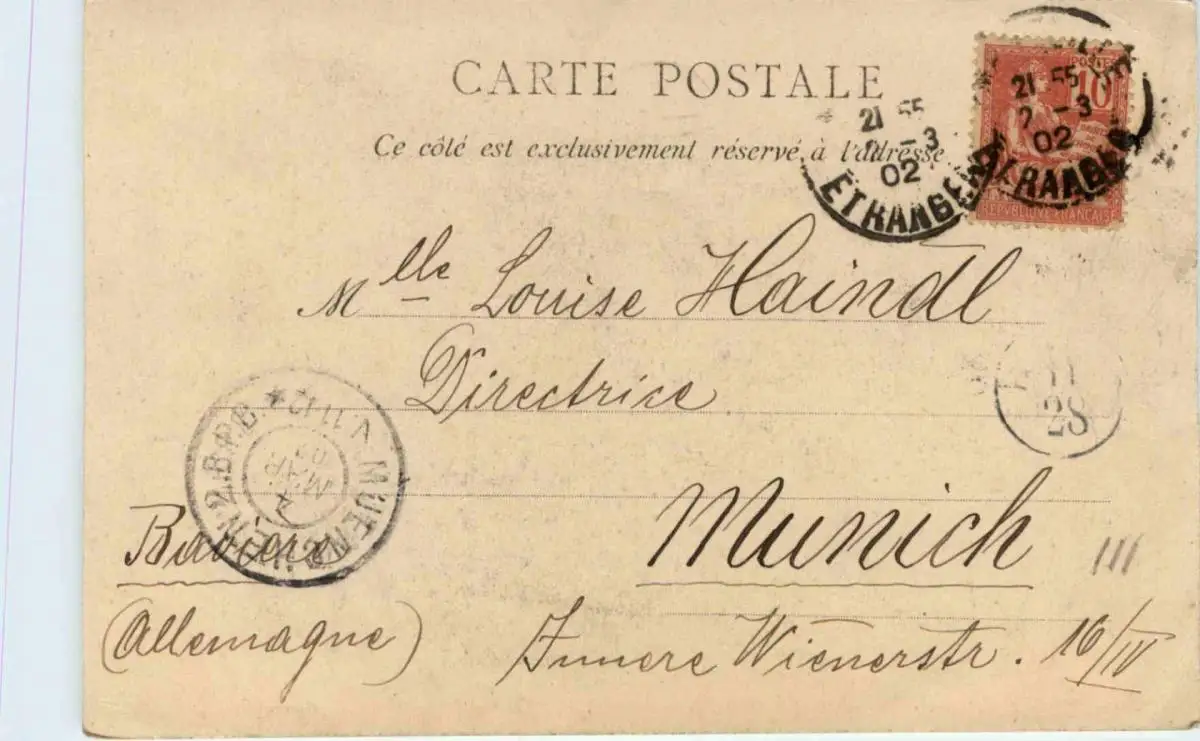 CARTE POSTALE
Ce côté est exclusivement réservé à l'adresse
21 55
2 -3
02
ETRANGER
POSTES
10
21 55
2 -3
02
ETRANGER
REPUBLIQUE FRANCAISE
Mlle Louise Haindl
Directrice
28
MUENCHEN 2.B.P.B
4
MAR
Munich
Bavière
III
(Allemagne)
Innere Wienerstr. 16/IV